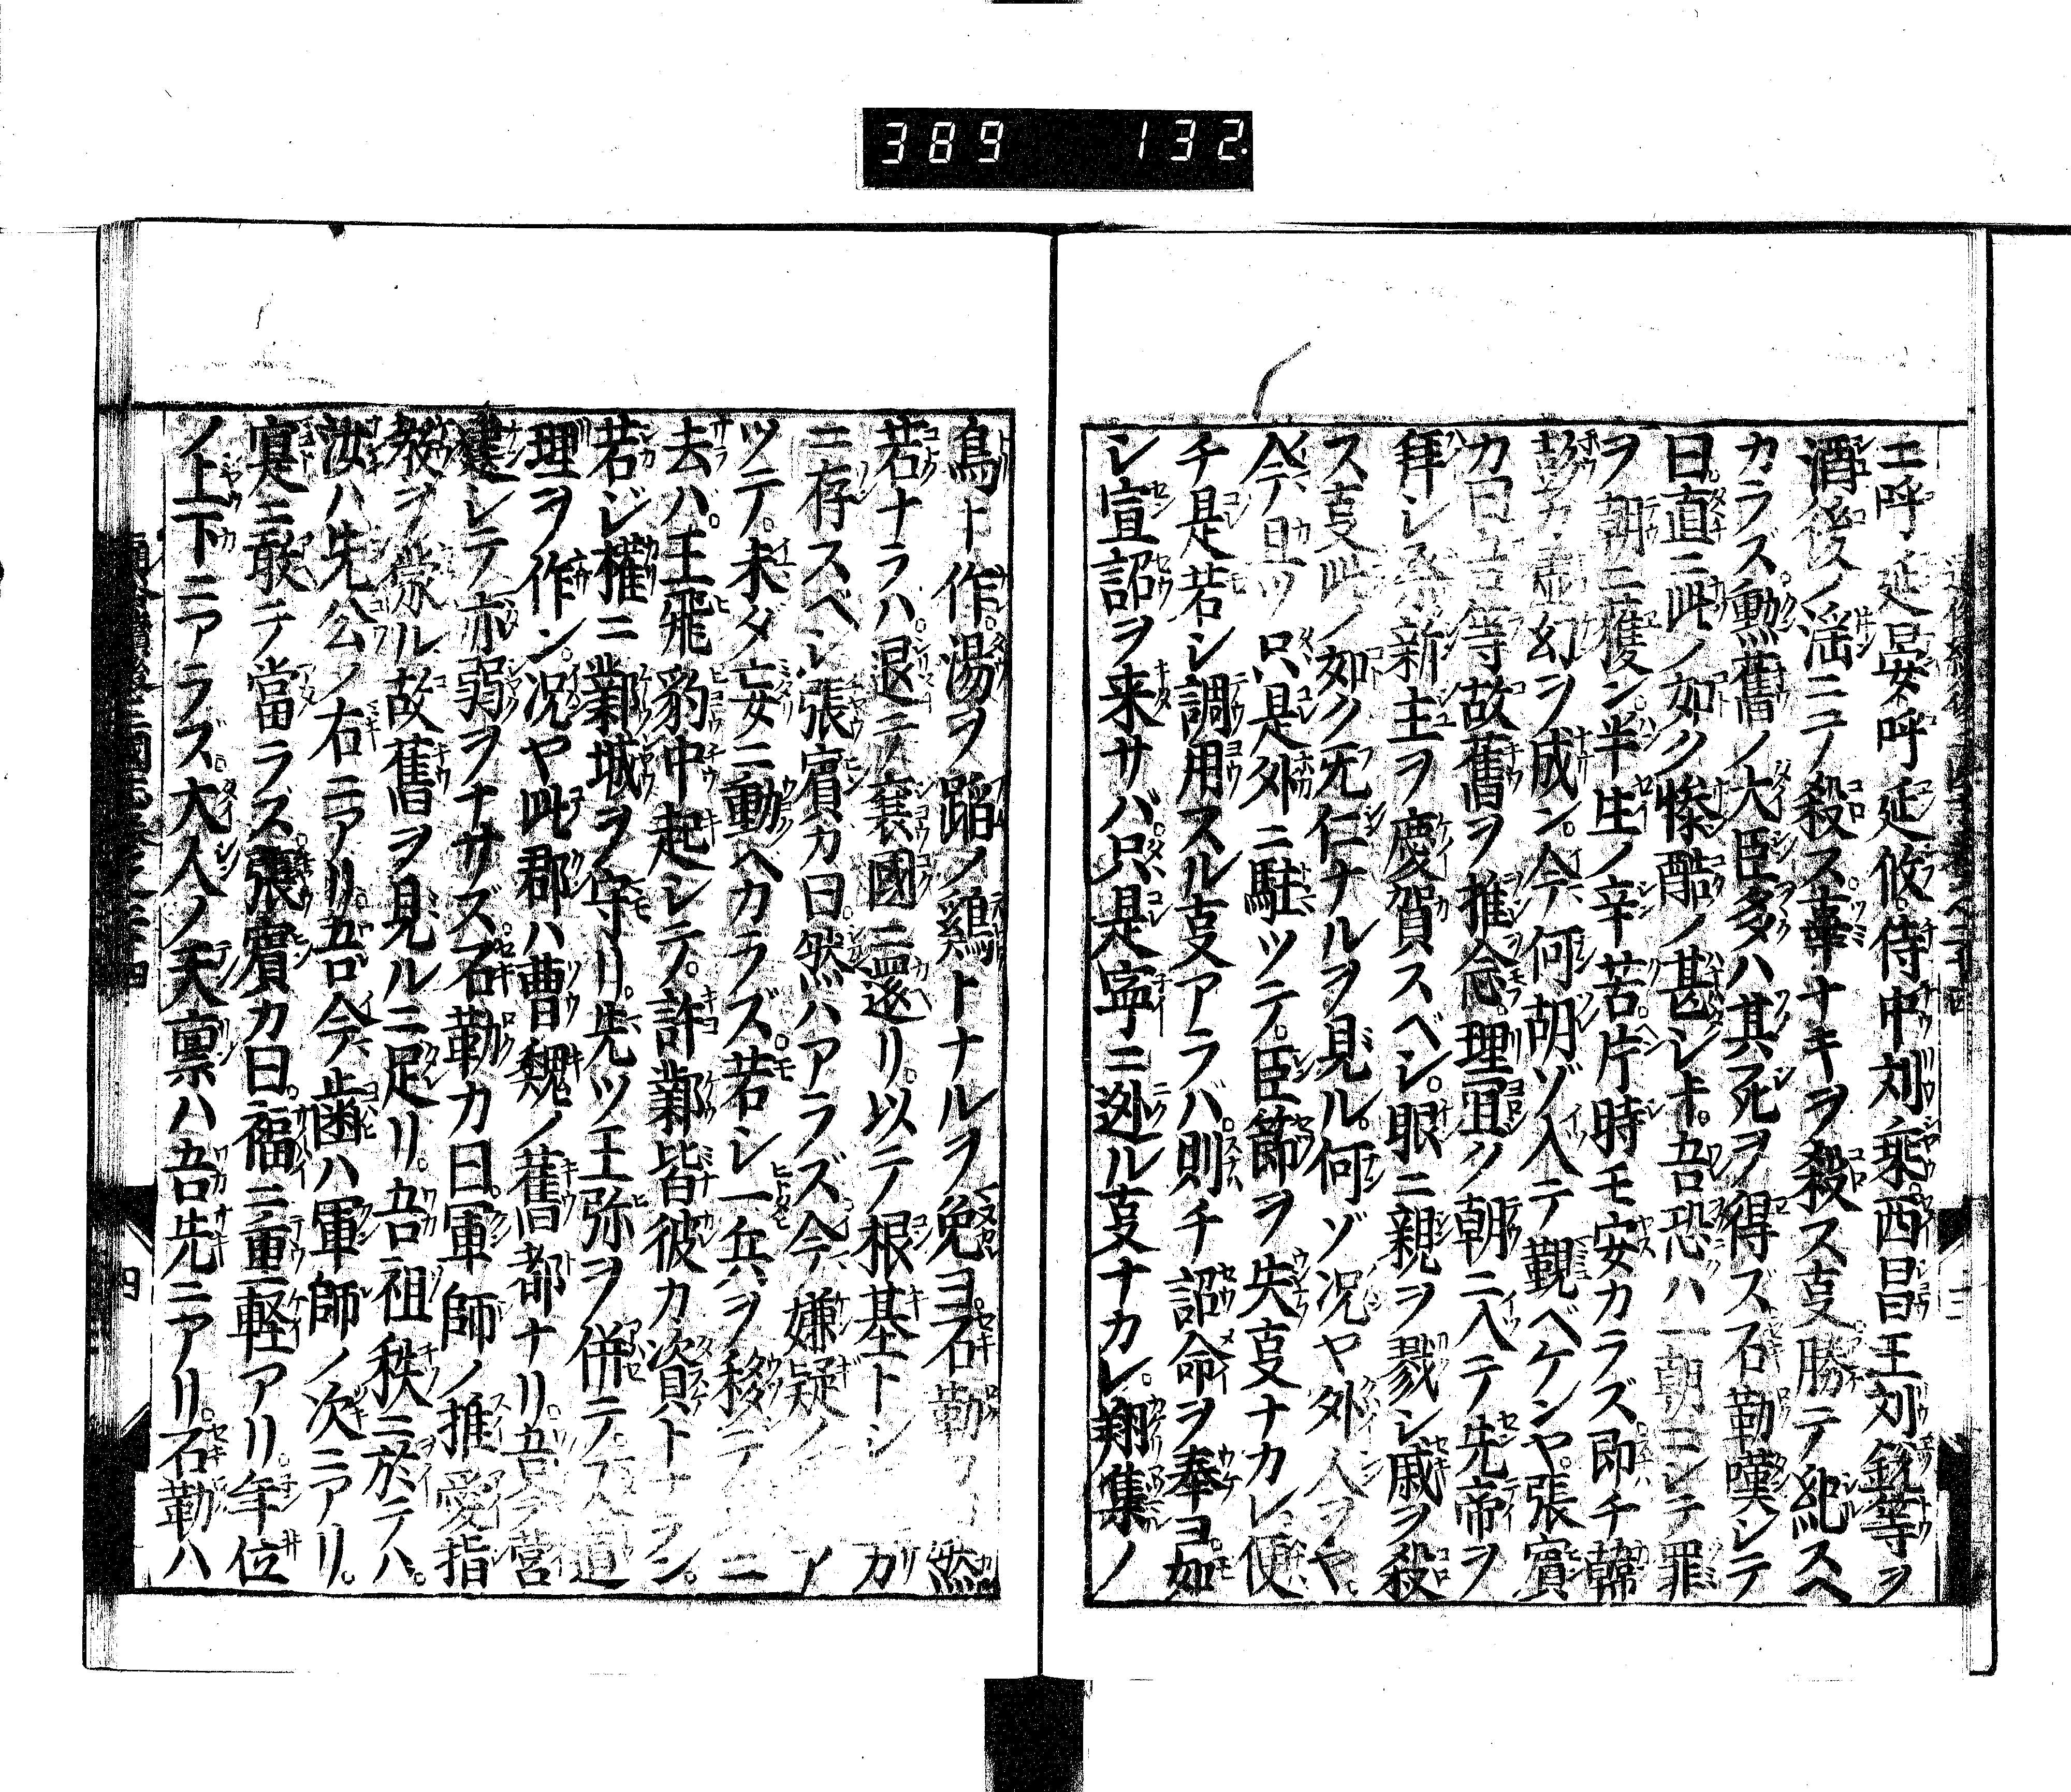 389 132
エ呼延晏呼延攸侍中刘乘西昌王刘銳等ヲ
酒後ノ淫ニテ殺ス辜ナキヲ殺ス㕝勝テ紀スヘ
カラズ勳舊ノ大臣多ハ其死ヲ得ズ石勒嘆シテ
曰直ニ此ノ如ク惨酷ノ甚シキ吾恐ハ一朝ニシテ罪
ヲ朝ニ獲ン半生ノ辛苦片時モ安カラズ即チ韓
彭カ虚幻ヲ成ン今何胡ゾ入テ覲ベケンヤ張賓
カ曰吉等故舊ヲ推念理宜ク朝ニ入テ先帝ヲ
拜シ新主ヲ慶賀スベシ眼ニ親ヲ戮シ戚ヲ殺
ス㕝此ノ如ク旡仁ナルヲ見ル何ゾ況ヤ外人ヲヤ
今且ツ只是外ニ駐ツテ臣節ヲ失㕝ナカレ便
チ是若シ調用スル㕝アラバ則チ詔命ヲ奉ヨ如
シ宣詔ヲ来サバ只是寧ニ逊ル㕝ナカレ翔集ノ
鳥ト作湯ヲ蹈ノ鷄トナルヲ免ヨ石勒カ 然
若ナラハ退テ襄國ニ還リ以テ根基トシ カ
ニ存スベシ張賓カ曰然ハアラズ今嫌疑ノ ア
ツテ未ダ妄ニ動ヘカラズ若シ一兵ヲ移テ ニ
去ハ王飛豹中起シテ許鄴皆彼カ資トナラン
若ジ權ニ鄴城ヲ守リ先ツ王弥ヲ併テ 道
理ヲ作ン況ヤ此郡ハ曹魏ノ舊都ナリ吾今營
建シテ亦弱ヲナサズ石勒カ曰軍師ノ推愛指
教ヲ蒙ル故舊ヲ見ルニ足リ吾祖秩ニ於テハ
汝ハ先公ノ右ニアリ吾今歯ハ軍師ノ次ニアリ
寔ニ敢テ當ラズ張賓カ曰福ニ重軽アリ年位
ノ上下ニアラズ大人ノ天禀ハ吾先ニアリ石勒ハ
四